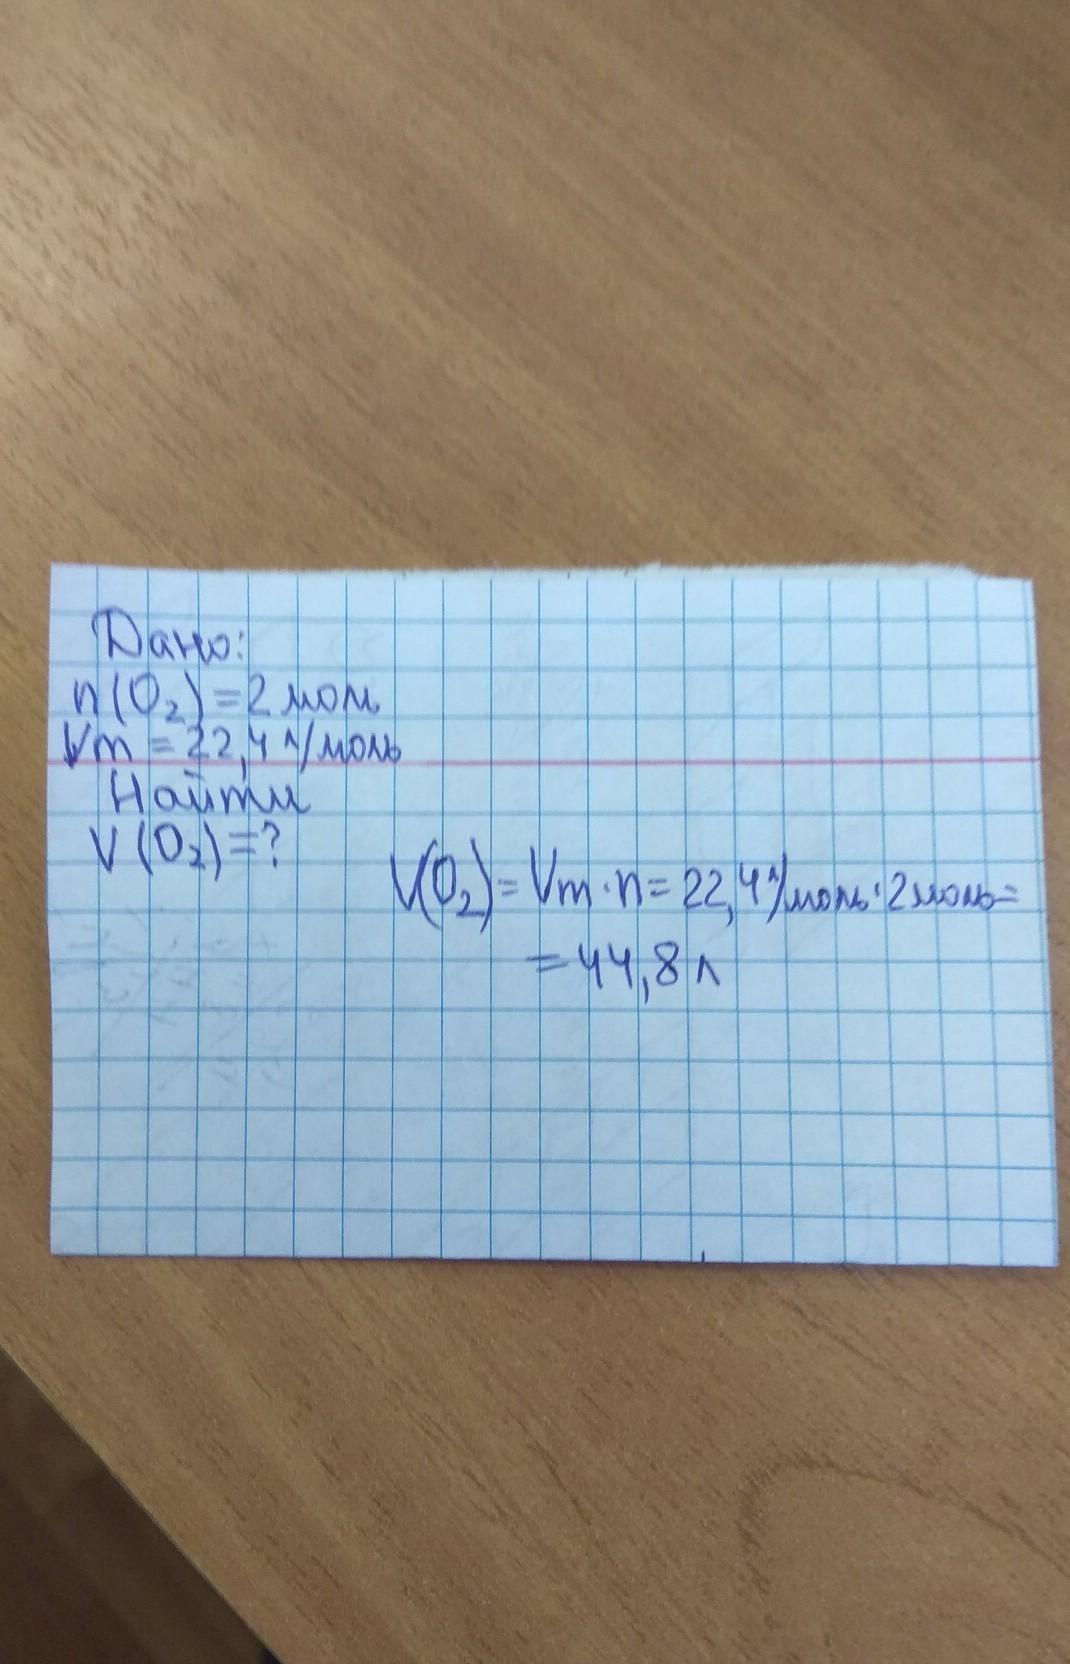 Дано:
n(O₂)=2 моль
Vm = 22,4 л/моль
Найти
V(O₂)=?
V(O₂)= Vm·n= 22,4 л/моль·2моль=
=44,8 л